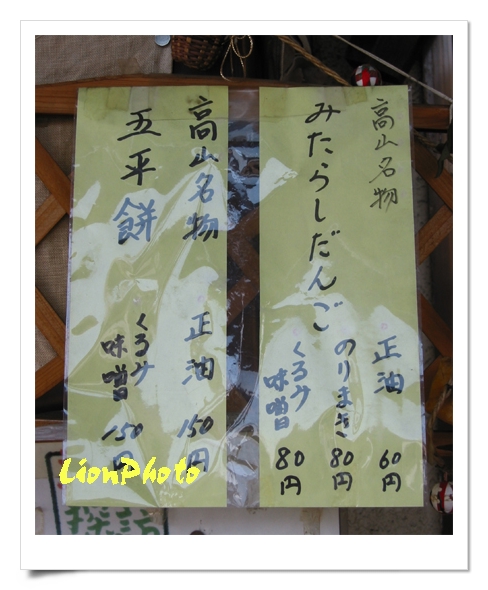 高山名物
みたらしだんご
正油 60円
のりまき 80円
くるみ味噌 80円
高山名物
五平餅
正油 150円
くるみ味噌 150円
LionPhoto
探訪